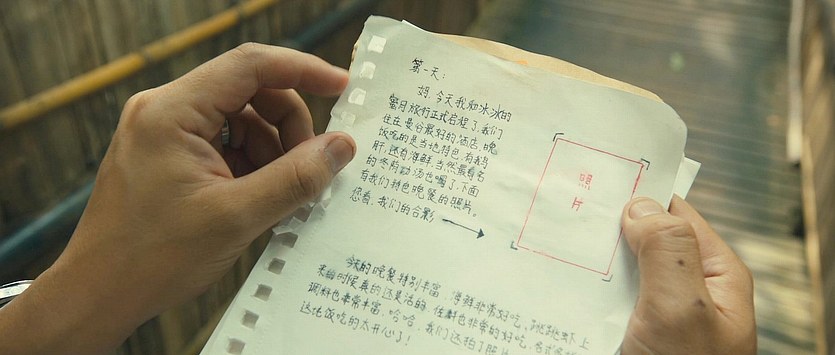 第一天：
妈，今天我和冰冰的
蜜月旅行正式启程了，我们
住在曼谷最好的酒店，晚
饭吃的是当地特色，有鹅
肝，还有海鲜，当然最有名
的冬荫功汤也喝了，下面
有我们特色晚餐的照片。
您看，我们的合影
照
片
今天的晚餐特别丰富，海鲜非常好吃，跳跳虾上
来的时候真的还是活的，佐料也非常的好吃，
调料也非常丰富，哈哈，我们还拍了照片
这地饭吃的太开心了！